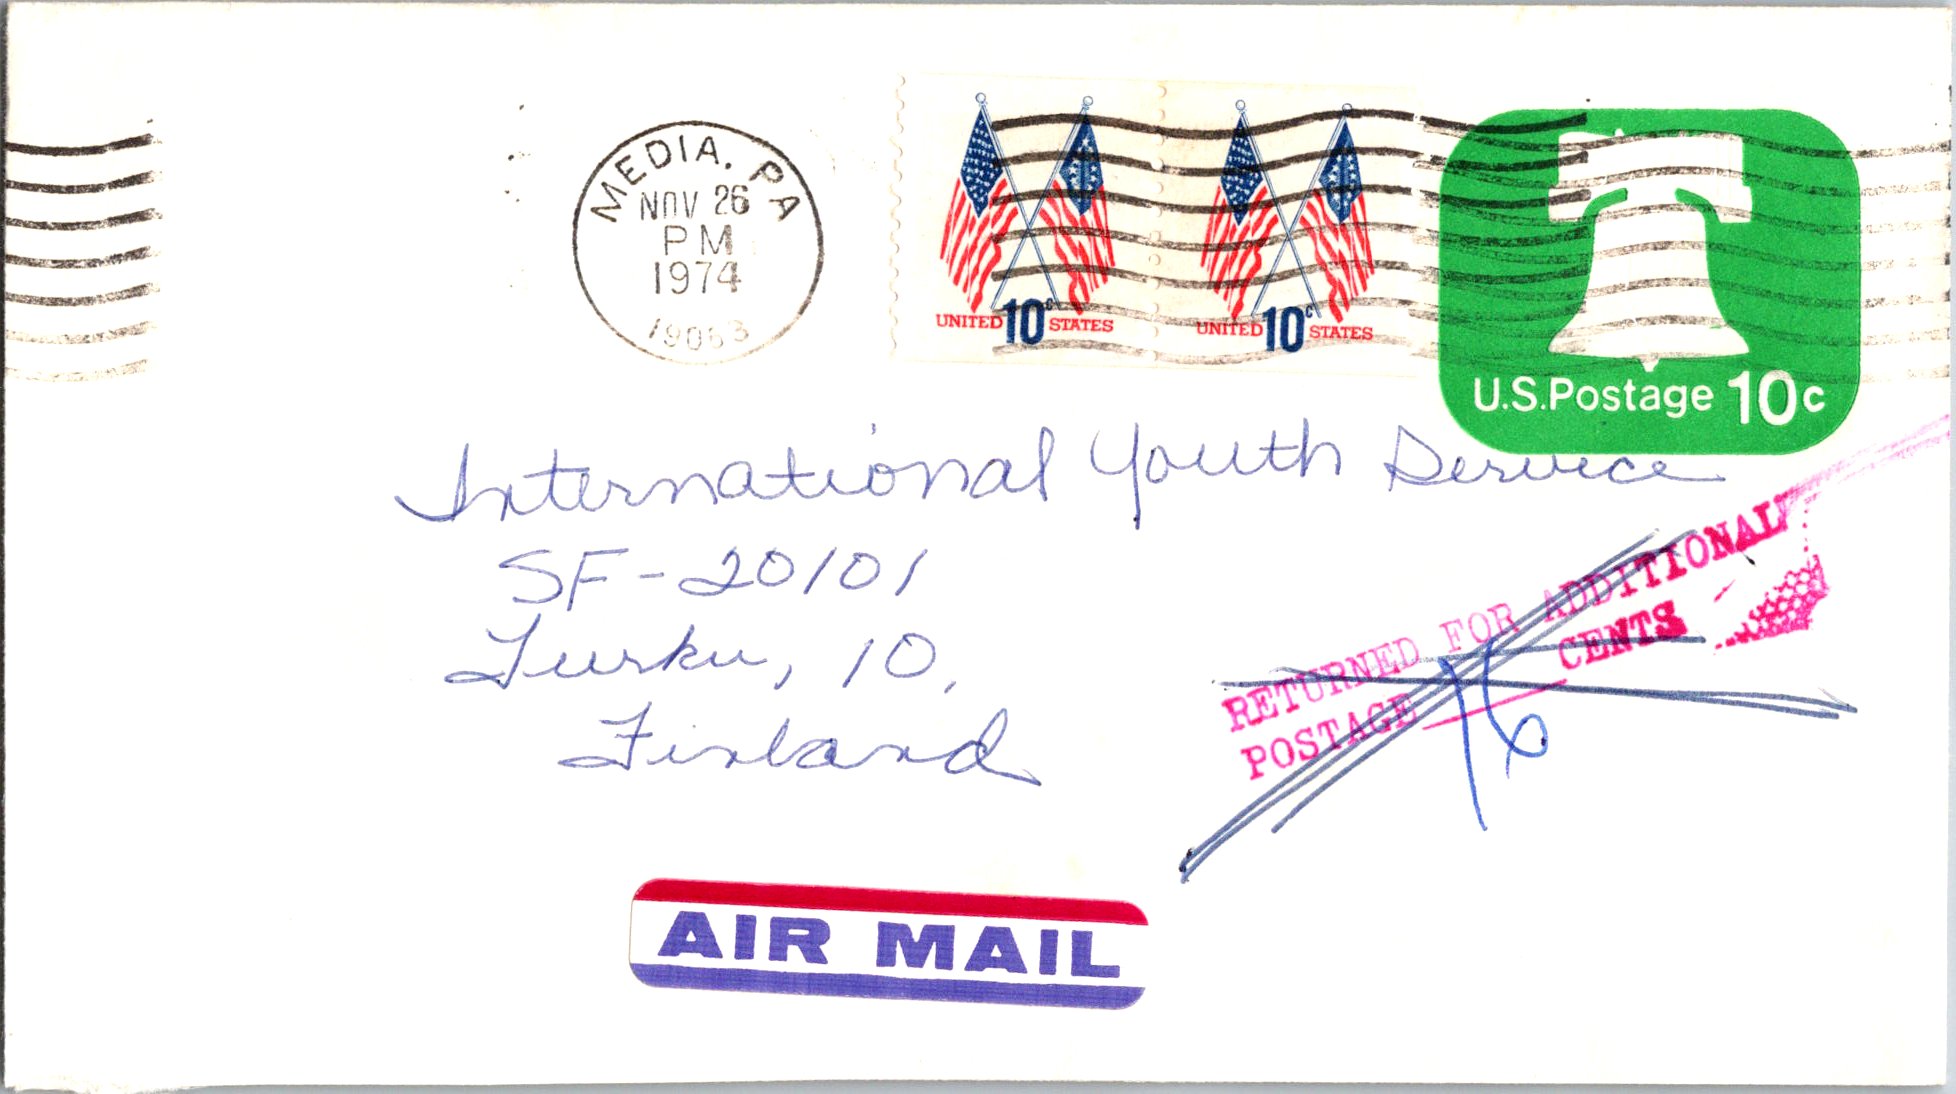 MEDIA, PA
NOV 26
PM
1974
19063
UNITED 10c STATES
UNITED 10c STATES
U.S. Postage 10c
International Youth Service
SF-20101
Turku, 10,
Finland
RETURNED FOR ADDITIONAL
POSTAGE CENTS
16
AIR MAIL